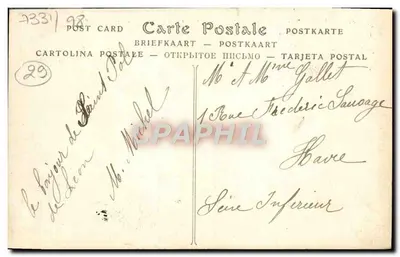 7331/98
POST CARD Carte Postale POSTKARTE
BRIEFKAART — POSTKAART
CARTOLINA POSTALE — ОТКРЫТОЕ ПИСЬМО — TARJETA POSTAL
29
le bonjour de Saint Pol
de Leon
M. Michel
Mr et Mme Gallet
1 Rue Frédéric Sauvage
Havre
Seine Inferieur
CPAPHIL.COM